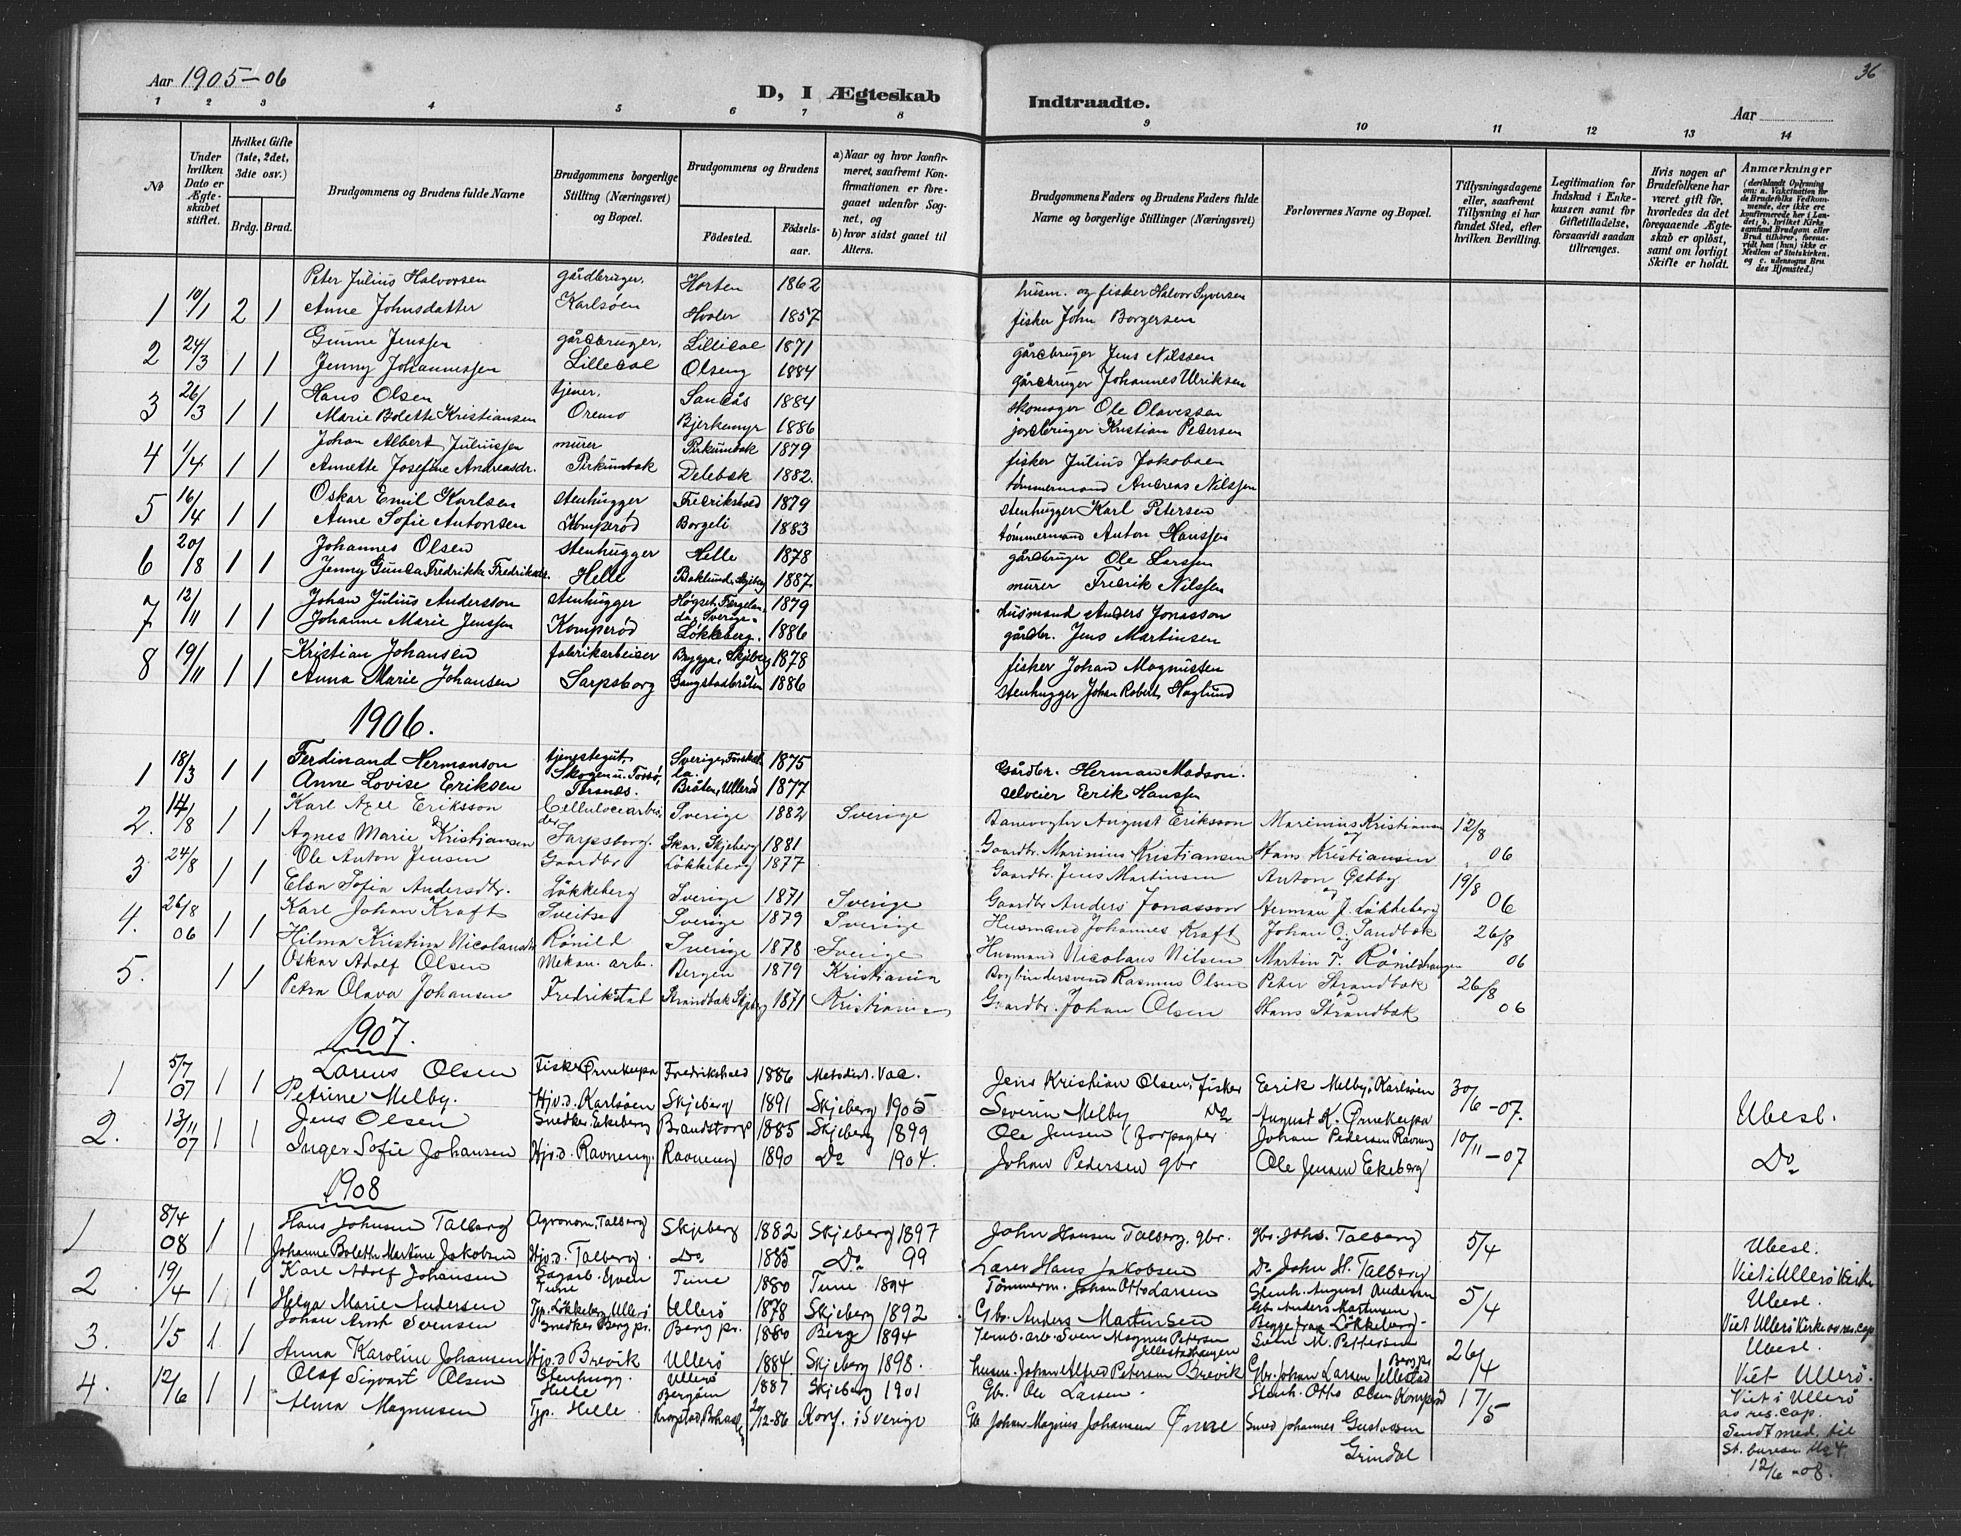 Aar 1905-06
D, I Ægteskab
Indtraadte.
Aar
36
1 2 3 4 5 6 7 8 9 10 11 12 13 14
No
Under hvilken Dato er Ægteskabet stiftet.
Hvilket Gifte (1ste, 2det, 3die osv.)
Brdg. Brud.
Brudgommens og Brudens fulde Navne
Brudgommens borgerlige Stilling (Næringsvei) og Bopæl.
Brudgommens og Brudens
Fødested.
Fødselsaar.
a) Naar og hvor konfirmeret, saafremt Konfirmationen er foregaaet udenfor Sognet, og
b) hvor sidst gaaet til Alters.
Brudgommens Faders og Brudens Faders fulde Navne og borgerlige Stillinger (Næringsvei)
Forlovernes Navne og Bopæl.
Tillysningsdagene eller, saafremt Tillysning ei har fundet Sted, efter hvilken Bevilling.
Legitimation for Indskud i Enkekassen samt for Giftetilladelse, forsaavidt saadan tiltrænges.
Hvis nogen af Brudefolkene har været gift før, hvorledes da det foregaaende Ægteskab er opløst, samt om lovligt Skifte er holdt.
Anmærkninger
Peter Julius Halvorsen gårdbruger, Horten 1862 husm. og fisker Halvor Syversen
1 10/1 2 1 Anne Johnsdatter Karlsøen Hvaler 1857 fisker John Borgersen
Gunne Jenssen gårdbruger, Lilledal 1871 gårdbruger Jens Nilssen
2 24/3 1 1 Jenny Johannessen Lilledal Olseng 1884 gårdbruger Johannes Ulriksen
Hans Olsen tjener, Sandås 1884 skomager Ole Olavessen
3 26/3 1 1 Marie Bolette Kristiansen Oremo Bjerkemyr 1886 jordbruger Kristian Pedersen
Johan Albert Juliussen murer Pirkumbak 1879 fisker Julius Jakobsen
4 1/4 1 1 Annette Josefine Andreasdr. Pirkumbak Delebæk 1882. tømmermand Andreas Nilssen
Oskar Emil Karlsen stenhugger Fredrikstad 1879 stenhugger Karl Petersen
5 16/4 1 1 Anne Sofie Antonsen Komperød Borgeli 1883 tømmermand Anton Hanssen
Johannes Olsen stenhugger Helle 1878 gårdbruger Ole Larssen
6 20/8 1 1 Jenny Gunda Fredrikke Fredriksdr. Helle Baklund, Skjeberg 1887 murer Fredrik Nilssen
Johan Julius Andersson stenhugger Högset, Færgelanda, Sverige 1879 Husmand Anders Jonasson
7 12/11 1 1 Johanne Marie Jenssen Komperød Løkkeberg. 1886 gårdbr. Jens Martinsen
Kristian Johansen fabrikarbeider Brygga, Skjeberg 1878 fisker Johan Magnussen
8 19/11 1 1 Anna Marie Johansen Sarpsborg Gangstadbråten 1886 stenhugger Johan Robert Haglund
1906.
Ferdinand Hermanson tjenestegut, Sverige, 1875 Gårdbr. Herman Madson.
1 18/3 1 1 Anne Lovise Eriksen Bråten, Ullerö 1877 selveier Erik Hanssen
Karl Axel Eriksson Sverige 1882 Sverige Banevogter August Eriksson Marinius Kristiansen 12/8
2. 14/8 1 1 Agnes Marie Kristiansen Sarpsborg. Skar, Skjeberg 1881 Gaardbr. Marinius Kristiansen og Hans Kristiansen 06
Ole Anton Jensen Gaardbr Løkkeberg 1877 Gaardbr. Jens Martinsen Anton Østby 19/8
3 24/8 1 1 Elsa Sofia Andersdtr. Løkkeberg Sverige 1871 Sverige Gaardbr Anders Jonasson og Herman J. Løkkeberg 06
Karl Johan Kraft Sveitser Sverige 1879 Sverige Husmand Johannes Kraft Johan O. Sandbæk 26/8
4. 26/8 06 1 1 Hilma Kristina Nicolausdtr Rönild Sverige 1878 Sverige Husmand Nicolaus Nilsen og Martin T. Rönildhaugen 06
Oskar Adolf Olsen Mekan. arb. Bergen 1879 Kristiania Bogbindersvend Rasmus Olsen Peter Strandbæk 26/8
5. 1 1 Petra Olava Johansen Fredrikstad Strandbæk Skjeberg 1871 Kristiania Gaardbr. Johan Olsen Hans Strandbæk 06
1907.
1 5/7 07 1 1 Larens Olsen Fisker Ørnekupa Fredrikshald 1886 Metodist. Vac. Jens Kristian Olsen, fisker Eerik Melby, Karlsøen 30/6-07.
Petrine Melby. Hjv.d. Karlsøen Skjeberg 1891 Skjeberg 1905 Severin Melby Do August K. Ørnekupa Ubesl.
2. 13/11 07 1 1 Jens Olsen Snedker Ekeberg Brandstorp 1885 Skjeberg 1899 Ole Jensen (forpagter Johan Pedersen Ravneng 10/11-07
Inger Sofie Johansen Hjv.d. Ravneng. Ravneng 1890 Do 1904. Johan Pedersen gbr Ole Jensen Ekeberg Do
1908
1 8/4 08 1 1 Hans Johnsen Talberg Agronom, Talberg Skjeberg 1882 Skjeberg 1897 John Hansen Talberg, gbr. Gbr. Johs. Talberg 5/4
Johanne Boleth Martine Jakobsen Hjv.d. Talberg. Do 1885 Do 99 Lærer Hans Jakobsen Do John H. Talberg Ubesl. Viet i Ullerø Kirke
2 19/4 1 1 Karl Adolf Johansen Tune Tune 1880 Tune 1894 Tømmerm. Johan Otto Larsen Stenh. August Andersen 5/4 Ubesl.
Helga Marie Andersen Tjp. Løkkeberg, Ullerø Ullerø 1878 Skjeberg 1892 Gbr. Anders Martinsen Gbr. Anders Martinsen Begge fra Løkkeberg. Viet Ullerø Kirke av res. cap.
3. 1/5 1 1 Johan Arnt Svensen Snedker Berg pr. Berg pr. 1880 Berg 1894 Jernb. arb. Sven Magnus Petersen Sven M. Pettersen Berg pr. 26/4 Ubesl.
Anna Karoline Johansen Hjv.d Brevik Ullerø 1884 Skjeberg 1898. husm. Johan Alfred Petersen Brevik Gbr. Johan Larsen Jellestad Viet Ullerø.
4. 12/6 1 1 Olaf Sigvart Olsen Stenhugg. Helle Ullerø 1887 Skjeberg 1901 Gbr. Ole Larsen. Stenh. Otto Olsen Komperød 17/5 Viet i Ullerø av res. cap.
Alma Magnusen Tjp. Helle 12-86 Konf. i Sverige Gbr Johan Magnus Johansen Smed Johannes Gustavsen Grindal Sendt med. til St. bureau 12/6-08.